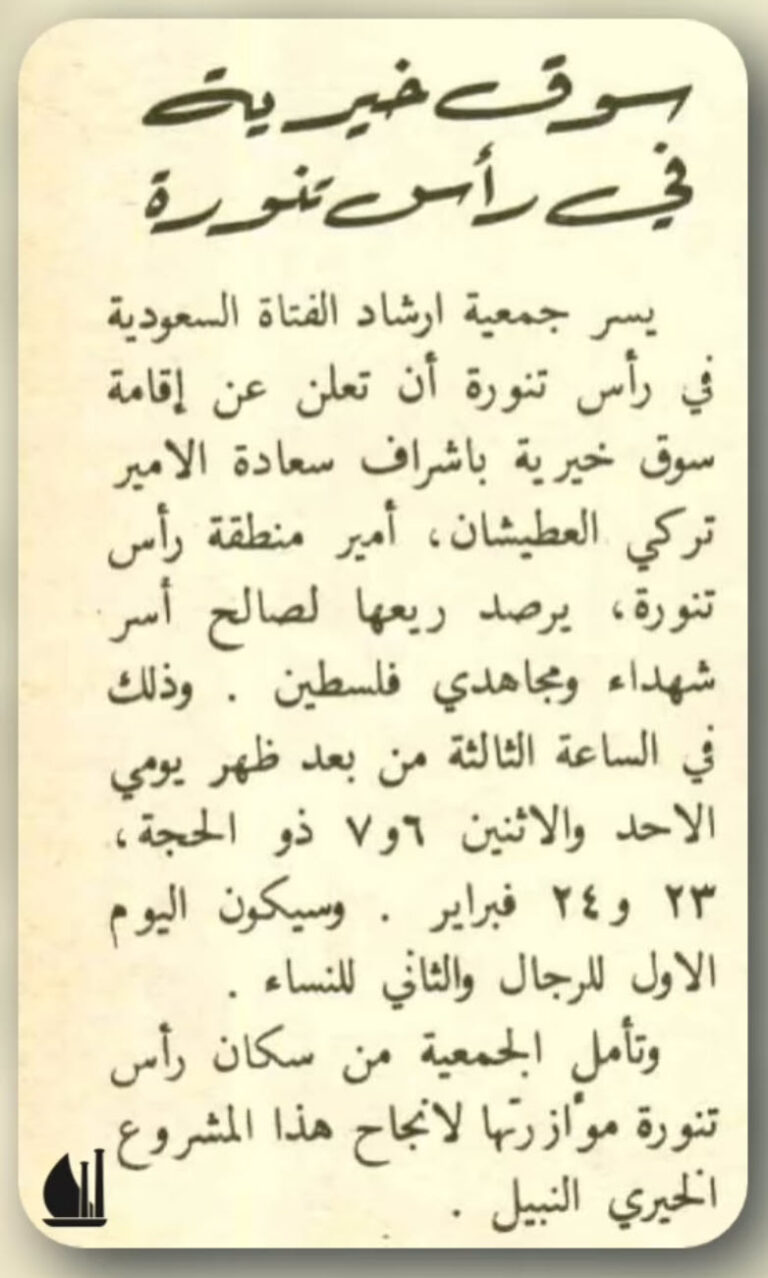 سوق خيرية
في رأس تنورة
يسر جمعية ارشاد الفتاة السعودية
في رأس تنورة أن تعلن عن إقامة
سوق خيرية باشراف سعادة الامير
تركي العطيشان، أمير منطقة رأس
تنورة، يرصد ريعها لصالح أسر
شهداء ومجاهدي فلسطين . وذلك
في الساعة الثالثة من بعد ظهر يومي
الاحد والاثنين ٦و٧ ذو الحجة،
٢٣ و٢٤ فبراير . وسيكون اليوم
الاول للرجال والثاني للنساء .
وتأمل الجمعية من سكان رأس
تنورة موٴازرتها لانجاح هذا المشروع
الخيري النبيل .